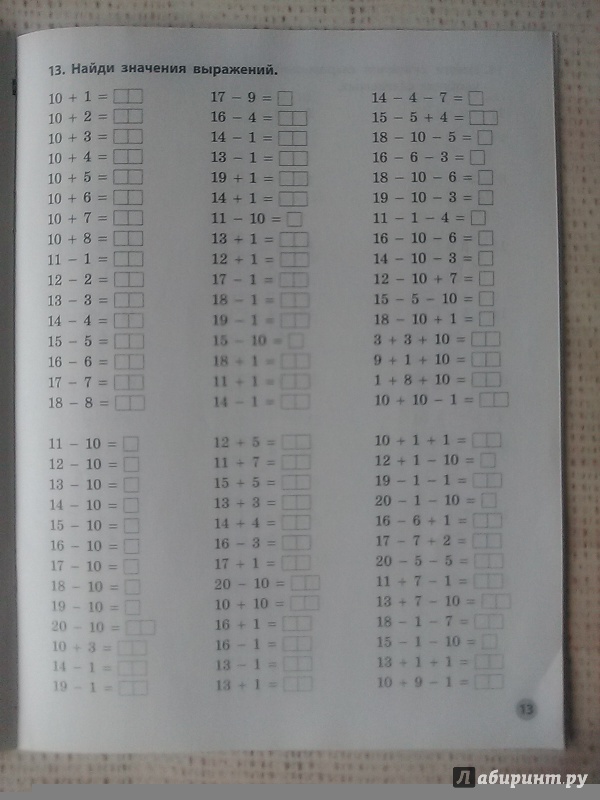 13. Найди значения выражений.
10 + 1 =
10 + 2 =
10 + 3 =
10 + 4 =
10 + 5 =
10 + 6 =
10 + 7 =
10 + 8 =
11 − 1 =
12 − 2 =
13 − 3 =
14 − 4 =
15 − 5 =
16 − 6 =
17 − 7 =
18 − 8 =
17 − 9 =
16 − 4 =
14 − 1 =
13 − 1 =
19 + 1 =
14 + 1 =
11 − 10 =
13 + 1 =
12 + 1 =
17 − 1 =
18 − 1 =
19 − 1 =
15 − 10 =
18 + 1 =
11 + 1 =
14 − 1 =
14 − 4 − 7 =
15 − 5 + 4 =
18 − 10 − 5 =
16 − 6 − 3 =
18 − 10 − 6 =
19 − 10 − 3 =
11 − 1 − 4 =
16 − 10 − 6 =
14 − 10 − 3 =
12 − 10 + 7 =
15 − 5 − 10 =
18 − 10 + 1 =
3 + 3 + 10 =
9 + 1 + 10 =
1 + 8 + 10 =
10 + 10 − 1 =
11 − 10 =
12 − 10 =
13 − 10 =
14 − 10 =
15 − 10 =
16 − 10 =
17 − 10 =
18 − 10 =
19 − 10 =
20 − 10 =
10 + 3 =
14 − 1 =
19 − 1 =
12 + 5 =
11 + 7 =
15 + 5 =
13 + 3 =
14 + 4 =
16 − 3 =
17 + 1 =
20 − 10 =
10 + 10 =
16 + 1 =
16 − 1 =
13 − 1 =
13 + 1 =
10 + 1 + 1 =
12 + 1 − 10 =
19 − 1 − 1 =
20 − 1 − 10 =
16 − 6 + 1 =
17 − 7 + 2 =
20 − 5 − 5 =
11 + 7 − 1 =
13 + 7 − 10 =
18 − 1 − 7 =
15 − 1 − 10 =
13 + 1 + 1 =
10 + 9 − 1 =
13
Лабиринт.ру